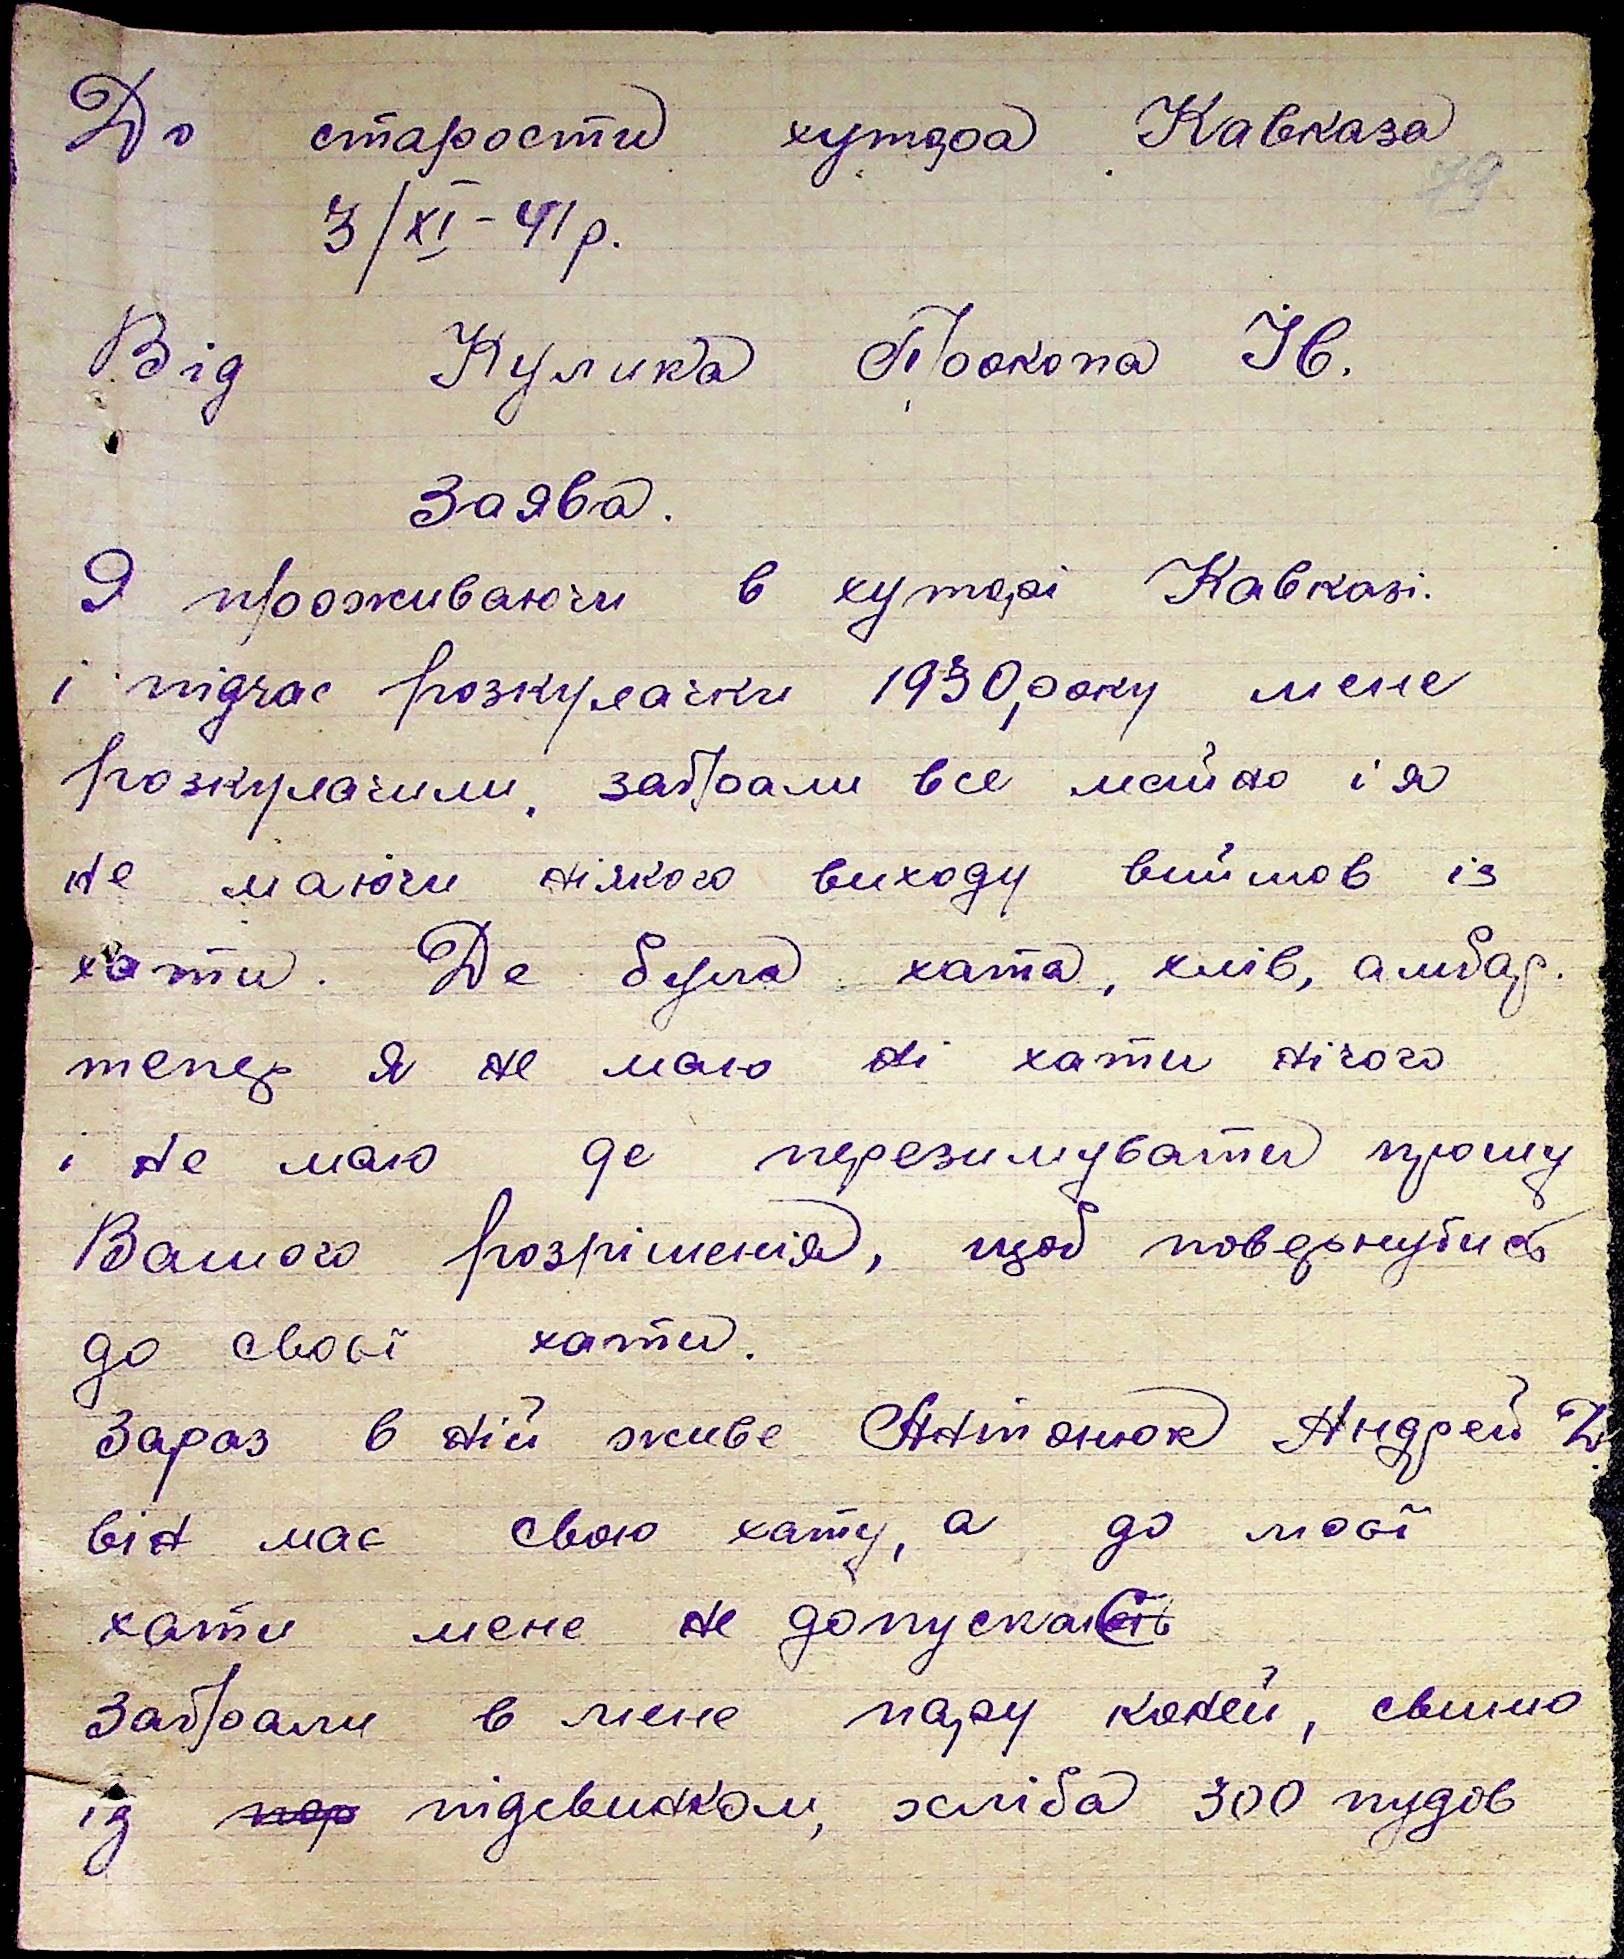 До старости хутора Кавказа
79
3/XI - 41 р.
Від Кулика Прокопа Ів.
Заява.
Я проживаючи в хуторі Кавказі.
і підчас розкулачки 1930 року мене
розкулачили, забрали все майно і я
не маючи ніякого виходу вийшов із
хати. Де була хата, хлів, амбар.
тепер я не маю ні хати нічого
і не маю де перезимувати прошу
Вашого розрішенія, щоб повернутись
до своєї хати.
Зараз в ній живе Антонюк Андрей Д.
він має свою хату, а до моєї
хати мене не допускає
Забрали в мене пару коней, свиню
із підсвинком, хліба 300 пудов